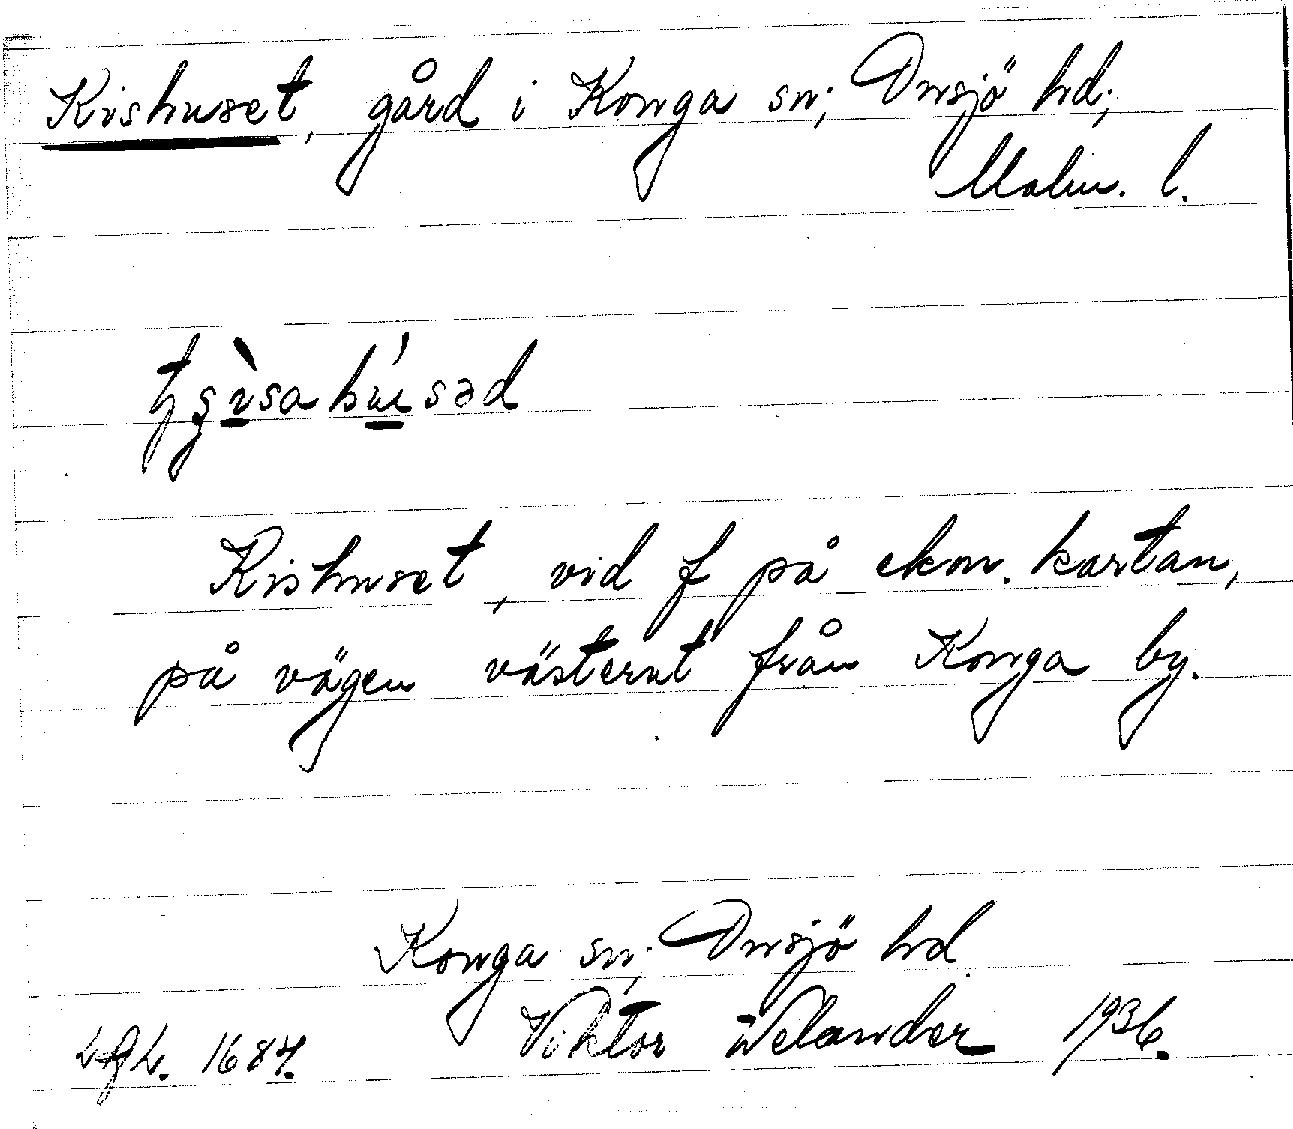 Kishuset, gård i Konga sn; Onsjö hd;
Malm. l.
Kishuset, vid f på ekon. kartan,
på vägen västerut från Konga by.
Konga sn; Onsjö hd
Viktor Welander 1936.